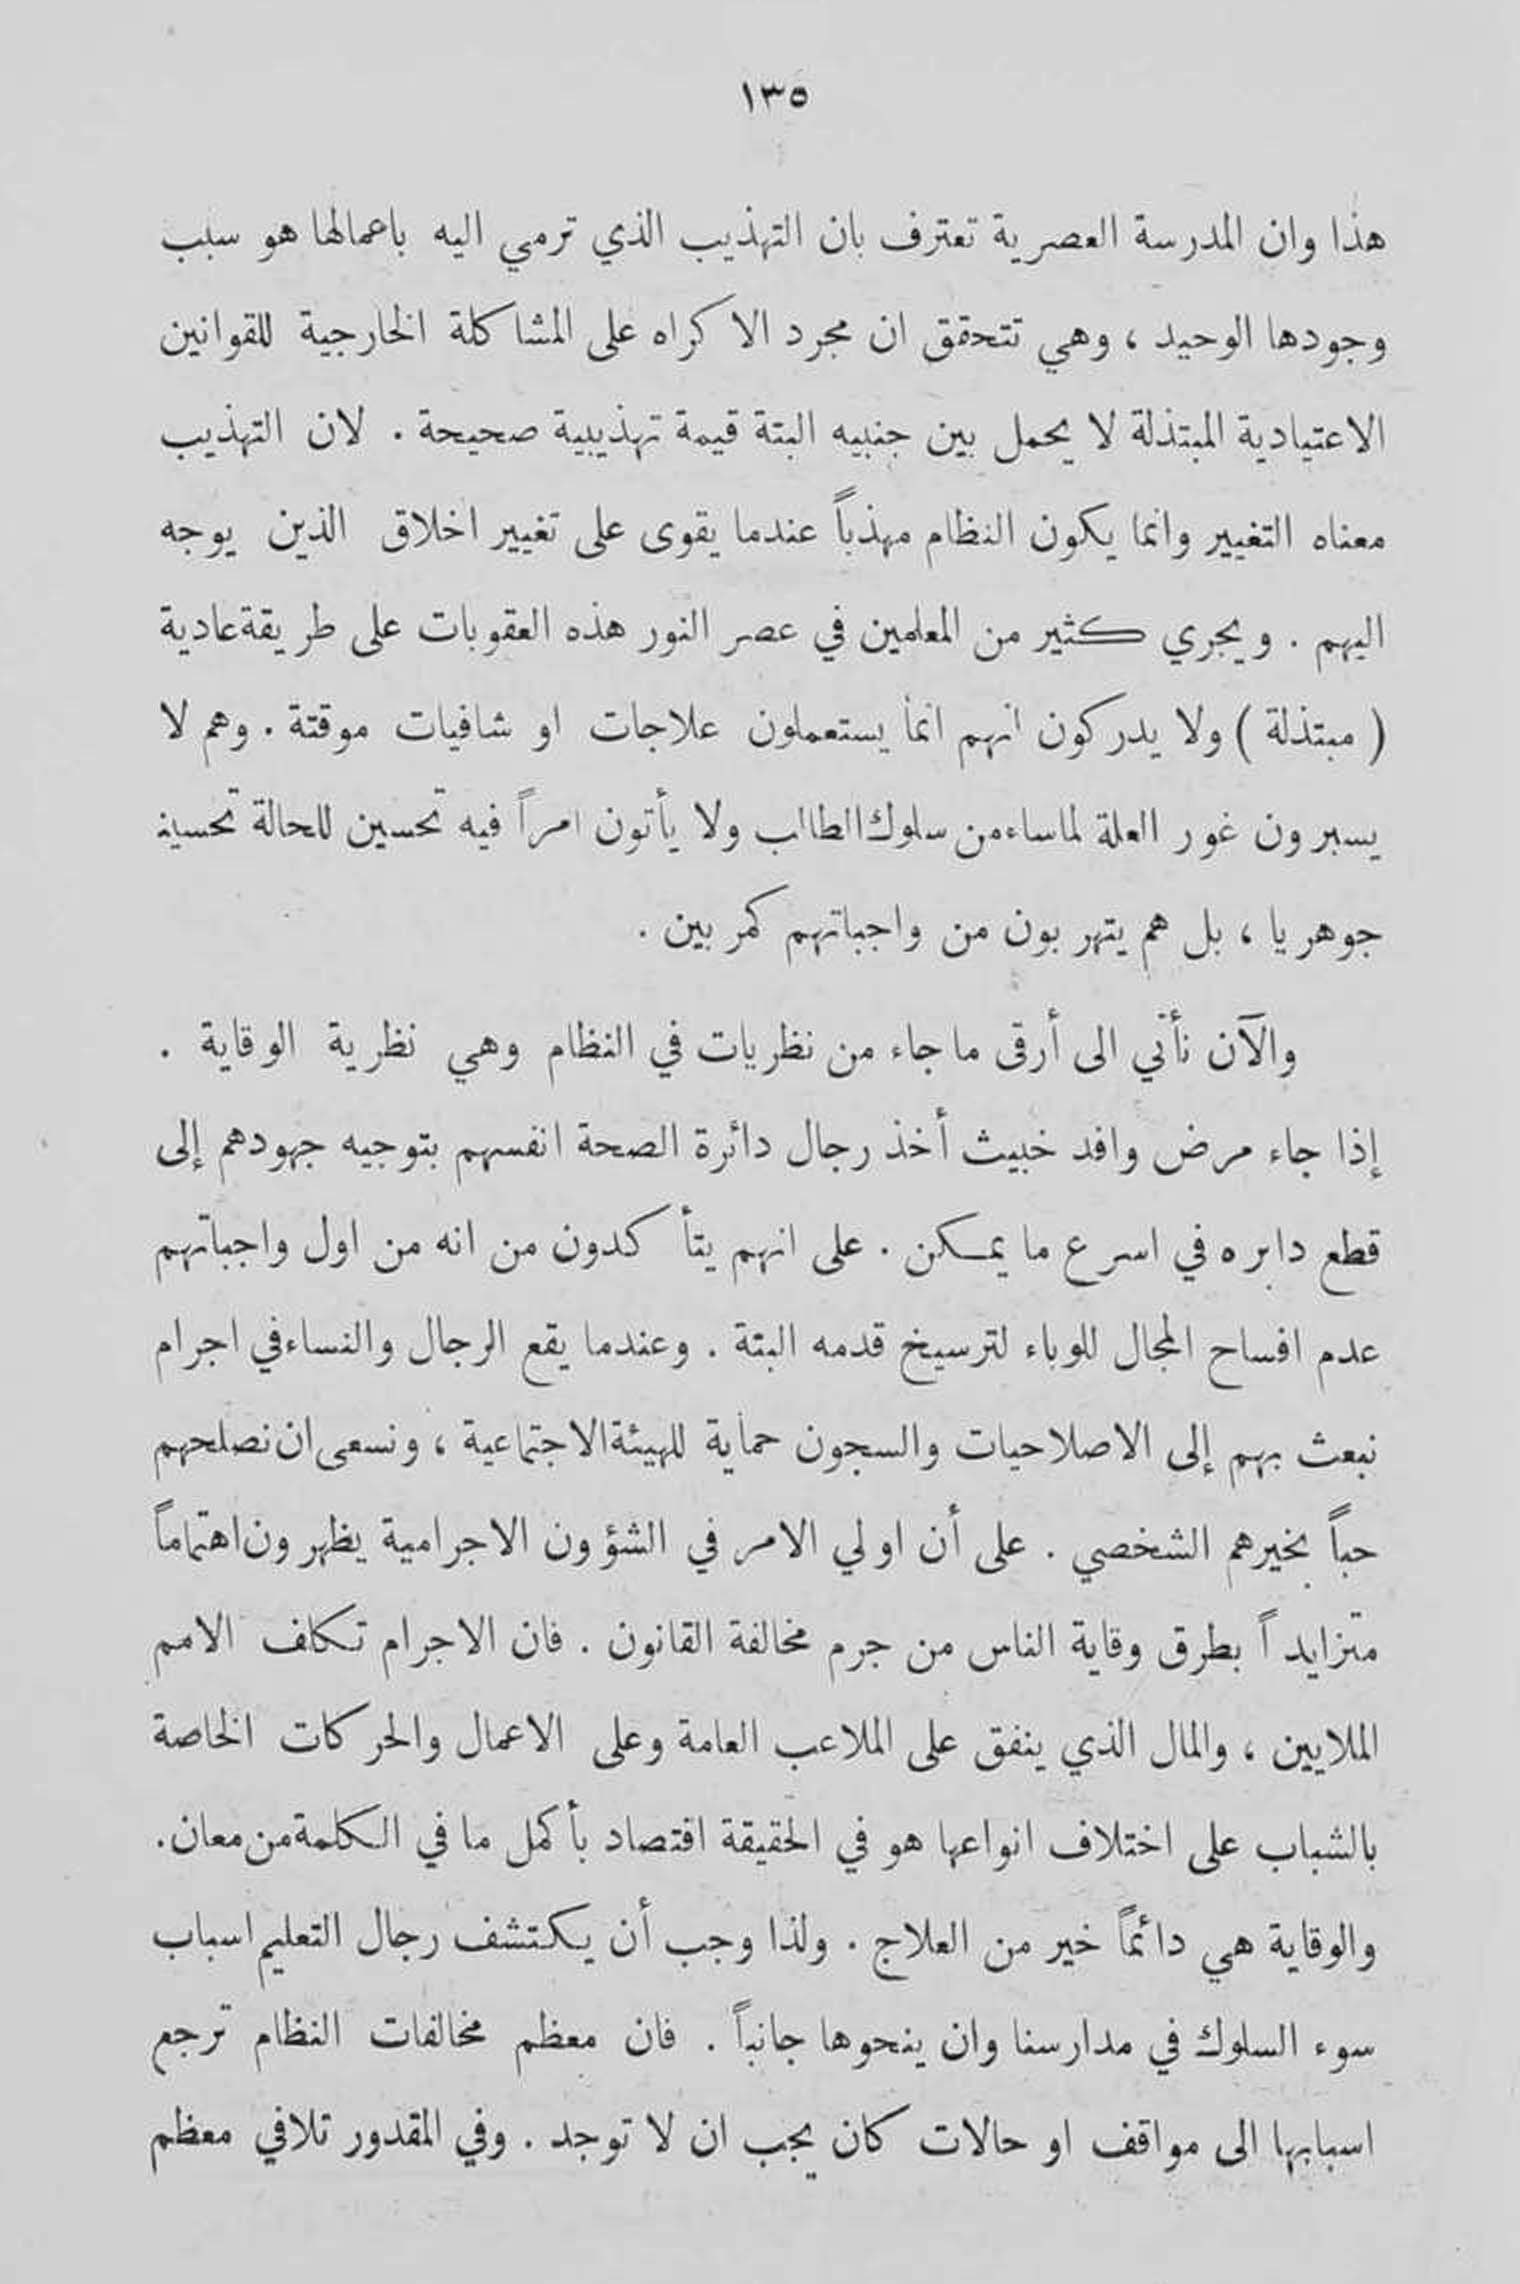 ١٣٥
هذا وان المدرسة العصرية تعترف بان التهذيب الذي ترمي اليه باعمالها هو سبب
وجودها الوحيد ، وهي تتحقق ان مجرد الاكراه على المشاكلة الخارجية للقوانين
الاعتيادية المبتذلة لا يحمل بين جنبيه البتة قيمة تهذيبية صحيحة . لان التهذيب
معناه التغيير وانما يكون النظام مهذباً عندما يقوى على تغيير اخلاق الذين يوجه
اليهم . ويجري كثير من المعلمين في عصر النور هذه العقوبات على طريقة عادية
( مبتذلة ) ولا يدركون انهم انما يستعملون علاجات او شافيات موقتة . وهم لا
يسبرون غور العلة لما ساء من سلوك الطالب ولا يأتون امراً فيه تحسين للحالة تحسين
جوهريا ، بل هم يتهربون من واجباتهم كمربين .
والآن نأتي الى أرقى ما جاء من نظريات في النظام وهي نظرية الوقاية .
إذا جاء مرض وافد خبيث أخذ رجال دائرة الصحة انفسهم بتوجيه جهودهم إلى
قطع دابره في اسرع ما يمكن . على انهم يتأكدون من انه من اول واجباتهم
عدم افساح المجال للوباء لترسيخ قدمه البتة . وعندما يقع الرجال والنساء في اجرام
نبعث بهم إلى الاصلاحيات والسجون حماية للهيئة الاجتماعية ، ونسعى ان نصلحهم
حباً بخيرهم الشخصي . على أن اولي الامر في الشؤون الاجرامية يظهرون اهتماماً
متزايداً بطرق وقاية الناس من جرم مخالفة القانون . فان الاجرام تكلف الامم
الملايين ، والمال الذي ينفق على الملاعب العامة وعلى الاعمال والحركات الخاصة
بالشباب على اختلاف انواعها هو في الحقيقة اقتصاد بأكمل ما في الكلمة من معان .
والوقاية هي دائماً خير من العلاج . ولذا وجب أن يكتشف رجال التعليم اسباب
سوء السلوك في مدارسنا وان ينحوها جانباً . فان معظم مخالفات النظام ترجع
اسبابها الى مواقف او حالات كان يجب ان لا توجد . وفي المقدور تلافي معظم